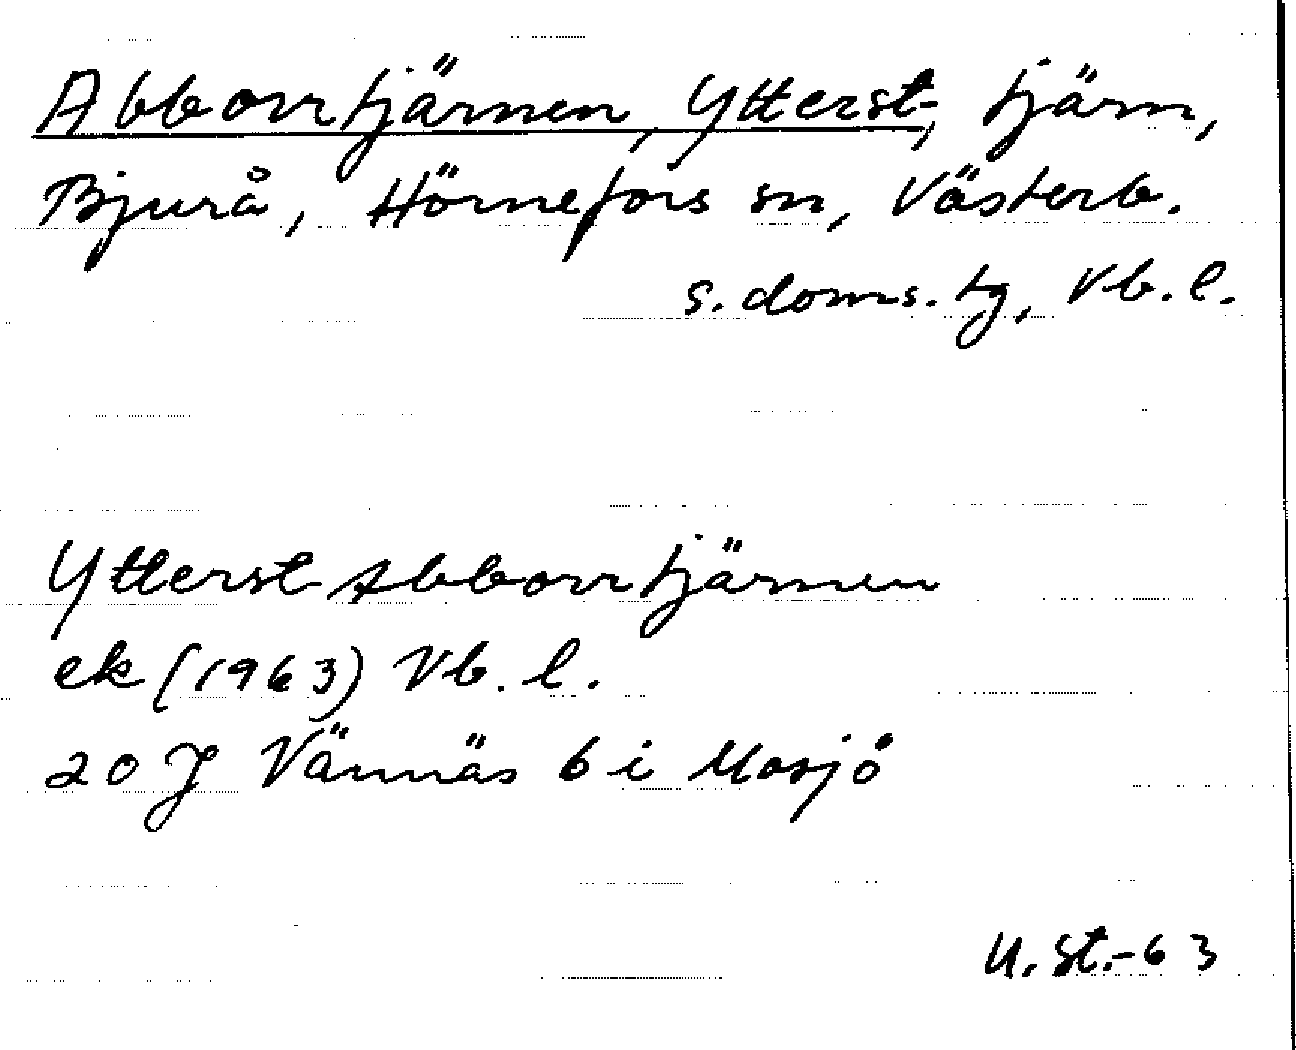 Abborrtjärnen, Ytterst-, tjärn,
Bjurå, Hörnefors sn, Västerb.
s. doms. tg, Vb. l.
Ytterst-Abborrtjärnen
ek (1963) Vb. l.
20 J Vännäs 6 i Mosjö
U. St.-63